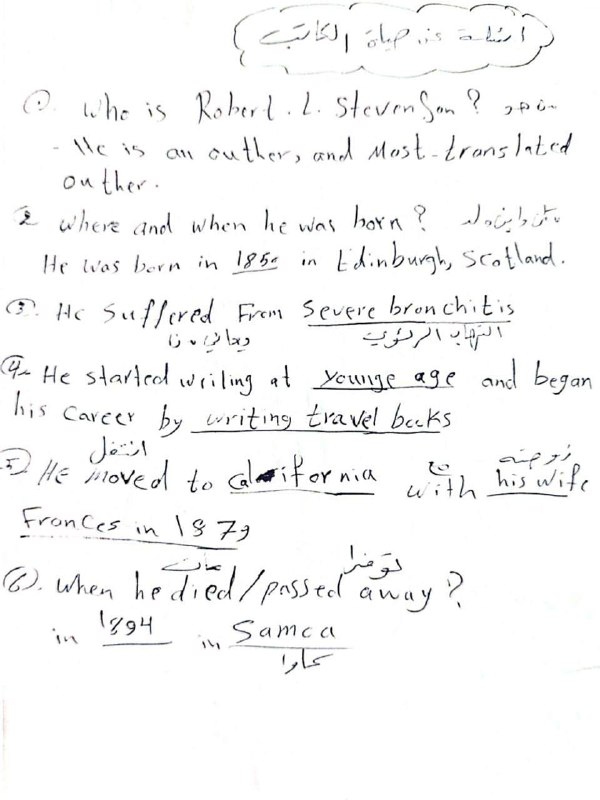 أسئلة عن حياة الكاتب
1. Who is Robert. L. Stevenson?
- He is an outher, and Most-translated
outher.
2 where and when he was born? متى وأين ولد
He was born in 1850 in Edinburgh, Scotland.
3. He Suffered From Severe bronchitis
التهاب الرئوي
4. He started wriling at younge age and began
his Career by writing travel books
انتقل زوجته
5 He moved to california with his wife
مع
Frances in 1879
مات توفى
6. when he died/passed away?
in 1894 in Samoa